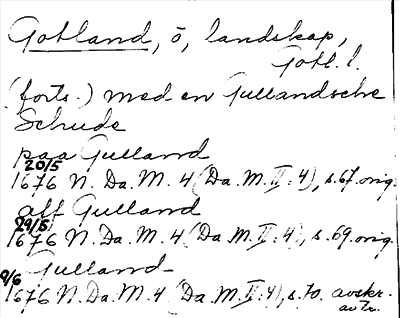 Gotland, ö, landskap,
Gotl. l.
(forts.) med en Gullandsche
Schude
paa Gulland
20/5
1676 N. Da. M. 4 (Da. M. II: 4), s. 67. orig.
aff Gulland
29/5
1676 N. Da. M. 4 (Da. M. II: 4), s. 69. orig.
Gulland
9/6
1676 N. Da. M. 4 (Da. M. II: 4), s. 70. avskr.
av tr.